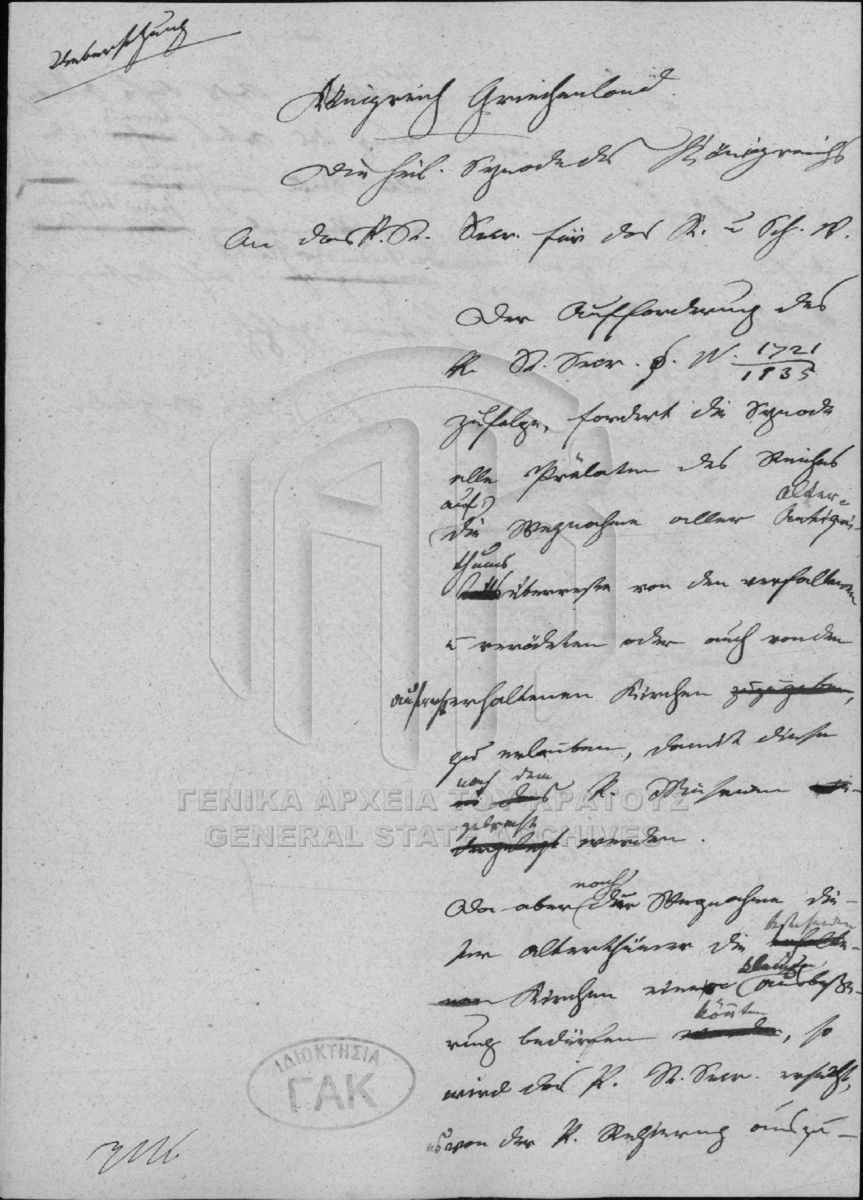 Uebersetzung
Königreich Griechenland.
Die heil. Synode des Königreichs
An das K. St. Secr. für des K. u Sch. W.
Der Aufforderung des
K. St. Secr. N. 1721/1835
zufolge, fordert die Synode
alle Prälaten des Reiches
auf Alter-
die Wegnahme aller
thums
überreste von den verfallenen
u verödeten oder auch von den
erhaltenen Kirchen zuzugeben,
zu erlauben, damit diese
nach dem
K. Museum
gebracht
werden.
nach
Da aber der Wegnahme die-
bestehenden
ser Alterthümer die
Kirchen einer ausbesse-
könnten
rung bedürfen, so
wird das K. St. Secr. ersucht,
von der K. Regierung auszu-
ΓΕΝΙΚΑ ΑΡΧΕΙΑ ΤΟΥ ΚΡΑΤΟΥΣ
GENERAL STATE ARCHIVES
ΙΔΙΟΚΤΗΣΙΑ
ΓΑΚ